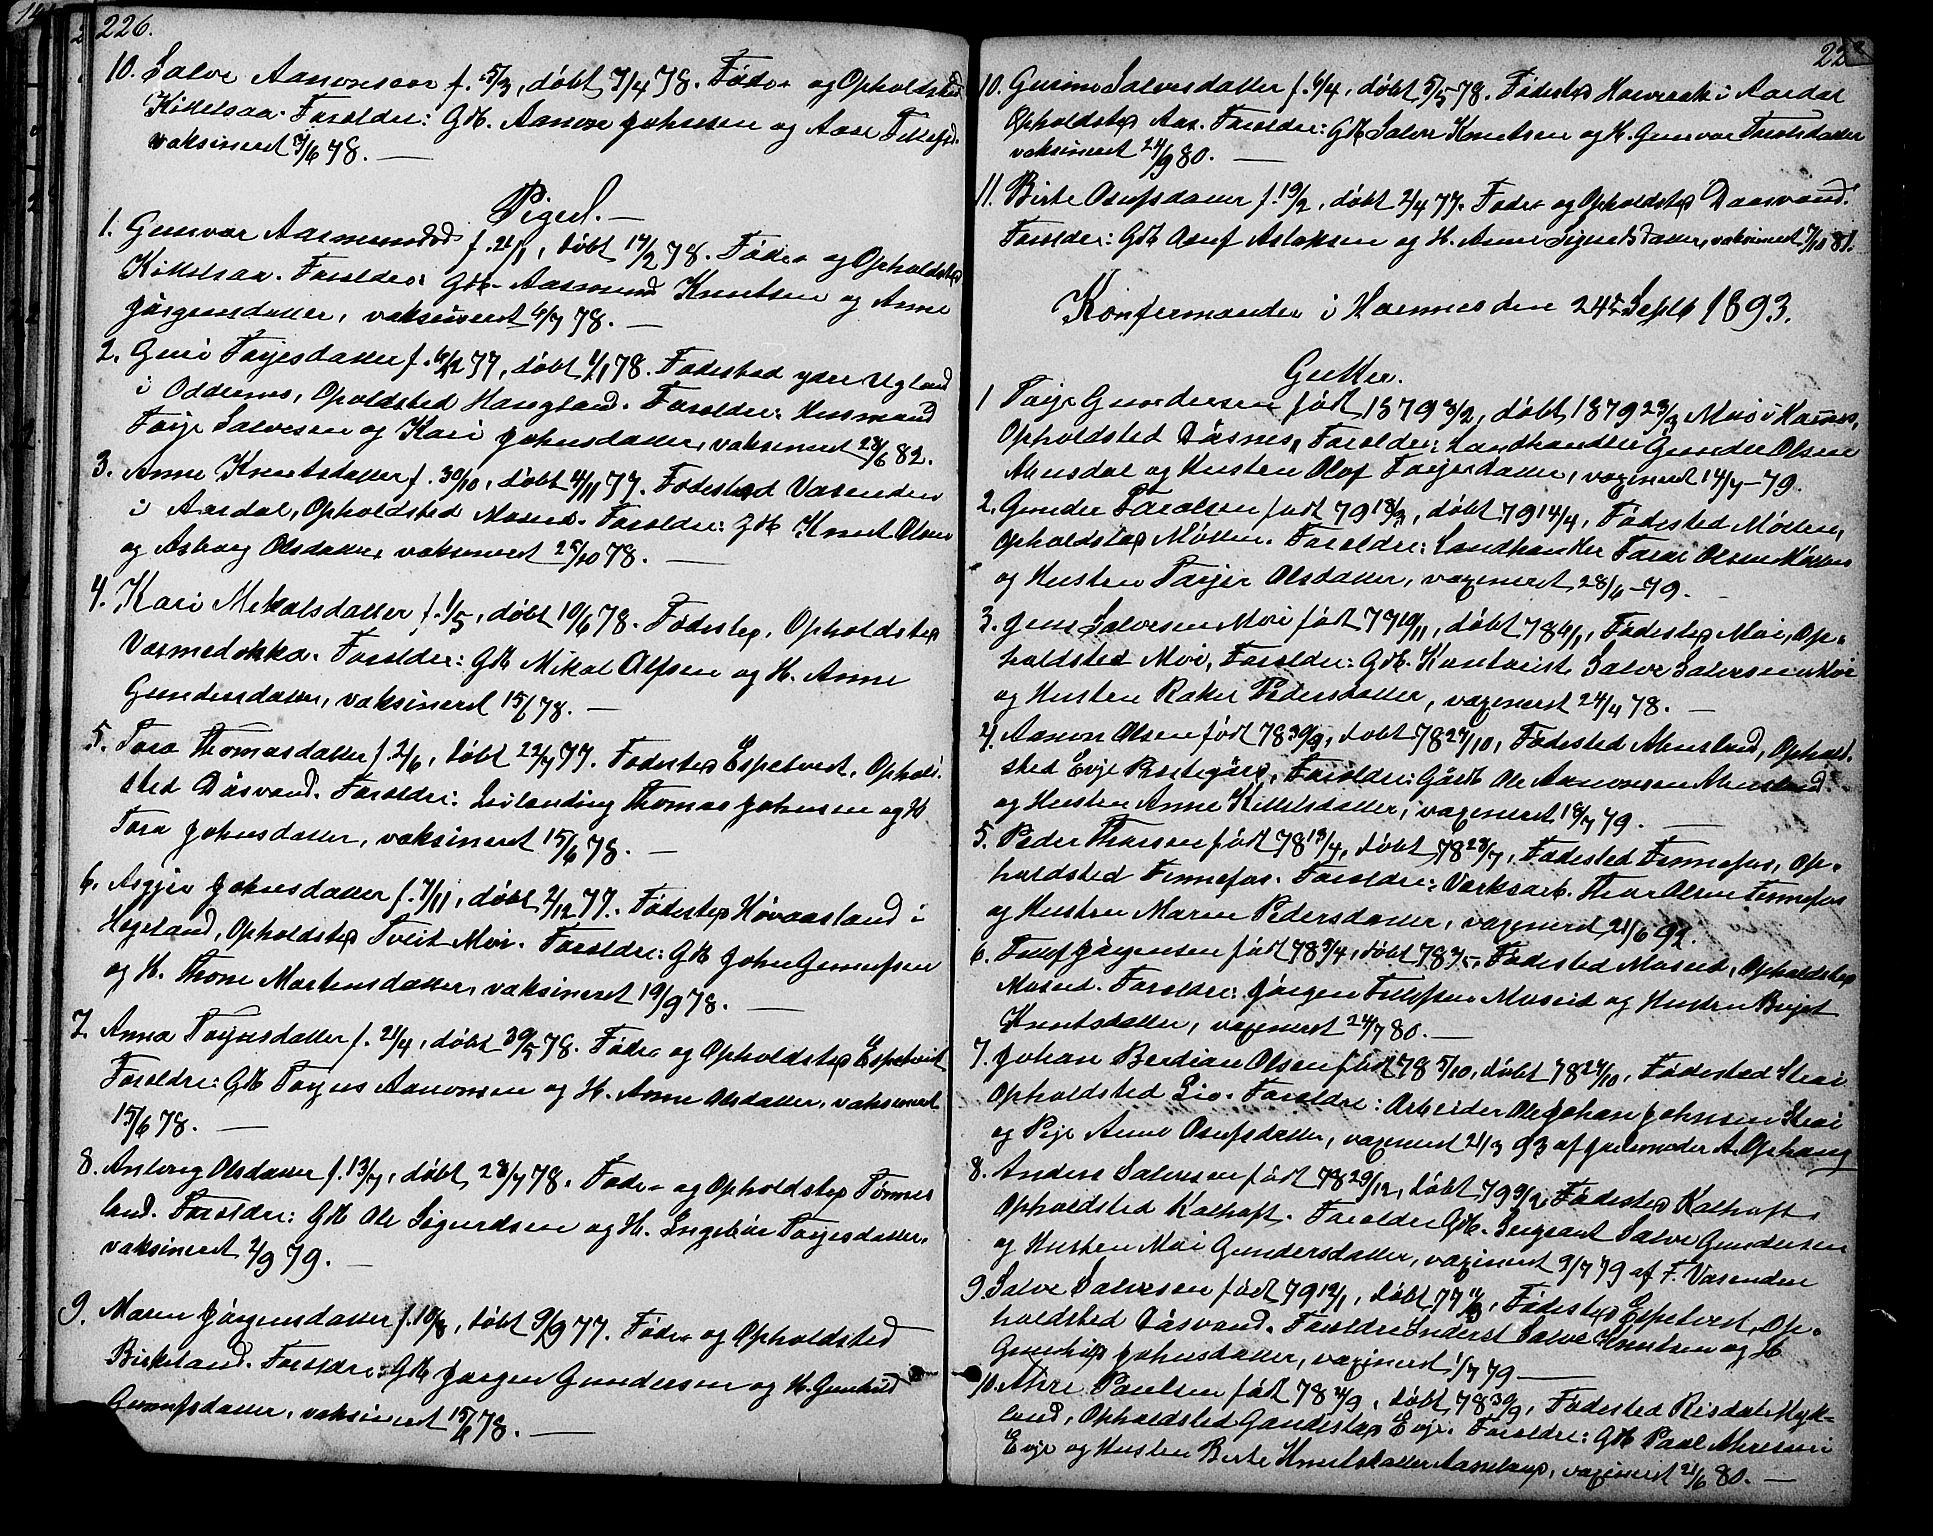 226.
10. Salve Aanonsen f. 5/3, døbt 7/4 78. Føde- og Opholdsted
Kittelsaa. Foreldre: Gdb. Aanon Johnsen og Aase Tellefsd.
vaksineret 3/6 78. —
Piger. —
1. Gunvor Aasmundsd f. 21/1, døbt 17/2 78. Føde- og Opholdsted
Kittelsaa. Foreldre: Gdb. Aasmund Knutsen og Anne
Jørgensdatter, vaksineret 4/7 78. —
2. Guri Tarjesdatter f. 6/12 77, døbt 1/1 78. Fødested ydre Ugland
i Oddernes, Opoldsted Haugland. Foreldre: Husmand
Tarje Salvesen og Kari Johnsdatter, vaksineret 23/6 82.
3. Anne Knutsdatter f. 30/10, døbt 4/11 77. Fødested Vasenden
i Aardal, Opholdsted Moseid. Foreldre: Gdb Knut Olsen
og Asborg Olsdatter, vaksineret 25/10 78. —
4. Kari Mikalsdatter f. 1/5, døbt 10/6 78. Fødested, Opholdsted
Varmedokka. Foreldre: Gdb Mikal Alfsen og H. Anne
Gundersdatter, vaksineret 15/6 78. —
5. Tora Thomasdatter f. 2/6, døbt 22/7 77. Fødested Espetveit, Ophold-
sted Dåsvand. Foreldre: Leilending Thomas Johnsen og H
Tora Johnsdatter, vaksineret 15/6 78. —
6. Asgjer Johnsdatter f. 7/11, døbt 2/12 77. Fødested Høvaasland i
Hægeland, Opholdsted Tveit Moi. Foreldre: Gdb John Gunufsen
og H. Thone Martensdatter, vaksineret 19/9 78. —
7. Anna Torjusdatter f. 21/4, døbt 30/5 78. Føde- og Opholdsted Espetveit
Foreldre: Gdb Torjus Aanonsen og H. Anne Olsdatter, vaksineret
15/6 78. —
8. Anborg Olsdatter f. 13/7, døbt 28/7 78. Føde- og Opholdsted Tømmer
land. Foreldre: Gdb Ole Sigurdsen og H. Ingebor Tarjesdatter,
vaksineret 2/9 79. —
9. Maren Jørgensdatter f. 10/8, døbt 9/9 77. Føde- og Opholdsted
Birkeland. Foreldre: Gdb Jørgen Gundersen og H. Gunhild
Gunufsdatter, vaksineret 15/6 78. —
10. Gurine Salvesdatter f. 6/4, døbt 5/5 78. Fødested i Aardal
Opholdsted Aas. Foreldre: Gdb Salve Knutsen og H. Gunvor Tarolsdatter
vaksineret 24/9 80. —
11. Birte Osufsdatter f. 19/2, døbt 2/4 77. Føde- og Opholdsted Daasvand.
Foreldre: Gdb Osuf Aslaksen og H. Anne Sigurdsdatter, vaksineret 7/10 81.
Konfermander i Hornnes den 24de Septb 1893.
Gutter.
1 Tarje Gundersen født 1879 3/2, døbt 1879 23/3 Moi i Hornnes,
Opholdsted Dåsnes, Foreldre: Landhandler Gunder Olsen
Mensdal og Hustru Olof Tarjesdatter, vaxineret 14/7-79.
2. Gunder Tarolsen født 79 13/3, døbt 79 14/4, Fødested Møllen,
Opholdsted Møllen. Foreldre: Landhandler Tarol Olsen Møllen
og Hustru Tarjer Olsdatter, vaxineret 28/6-79. —
3. Jens Salvesen Moi født 77 19/11, døbt 78 6/1, Fødested Moi, Op-
holdsted Moi, Foreldre: Gdb. Salve Salvesen Moi
og Hustru Rakel Pedersdatter, vaxineret 24/4 78. —
4. Aanon Olsen født 78 30/9, døbt 78 27/10, Fødested Mensland, Ophold-
sted Evje Prestegård, Foreldre: Gårdb Ole Aanonsen Mensland
og Hustru Anne Kittelsdatter, vaxineret 18/7 79. —
5. Peder Thorsen født 78 13/4, døbt 78 28/7, Fødested Fennefos, Op-
holdsted Fennefos. Foreldre: Verksarb. Thor Olsen Fennefos
og Hustru Maren Pedersdatter, vaxineret 21/6 92.
6. Tellef Jørgensen født 78 3/4, døbt 78, Fødested Moseid, Opholdsted
Moseid. Foreldre: Jørgen Tellefsen Moseid og Hustru Birjet
Knutsdatter, vaxineret 24/7 80. —
7. Johan Berdian Olsen født 78 5/10, døbt 78 27/10, Fødested Strai
Opholdsted Lio. Foreldre: Arbeider Ole Johan Johnsen Strai
og Pige Anne Osufsdatter, vaxineret 21/3 93 af jordemoder A. Ophang
8. Anders Salvesen født 78 29/12, døbt 79 9/2, Fødested Kalhoft
Opholdsted Kalhoft. Foreldre Gdb. Sergeant Salve Gundersen
og Hustru Moi Gundersdatter, vaxineret 9/7 79 af F. Vasenden
9. Salve Salvesen født 79 12/1, døbt 79, Fødested Espetveit, Op-
holdsted Dåsvand. Foreldre Inderst Salve Knutsen og H
Gunhild Johnsdatter, vaxineret 1/7 79 —
10. Paulsen født 78 2/9, døbt 78 30/9, Fødested Risdal Myk-
land, Opholdsted Gaudestad Evje. Foreldre: Gdb Paal i
Evje og Hustru Birte Knutsdatter, vaxineret 21/6 80. —